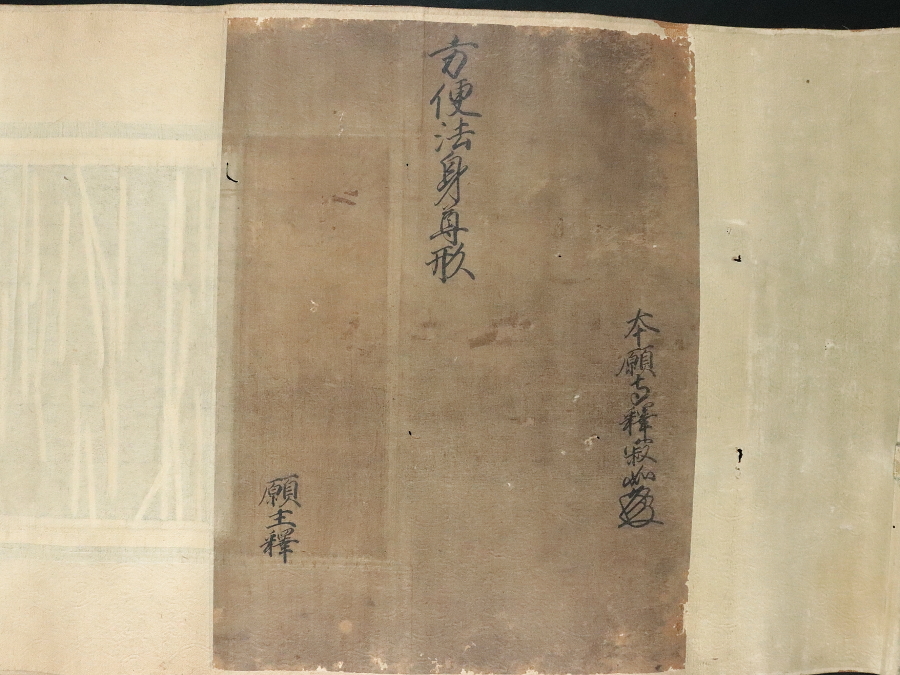 本願寺釋寂如(花押)
方便法身尊形
願主釋